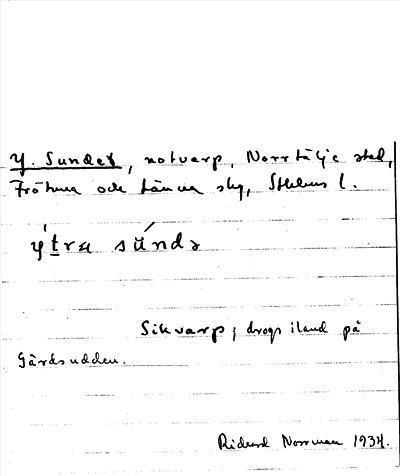 Y. Sundet, notvarp, Norrtälje stad,
Frötuna och Länna slg, Sthlms l.
ýtra súndə
Sikvarp; drogs iland på
Gårdsudden.
Rickard Norrman 1934.